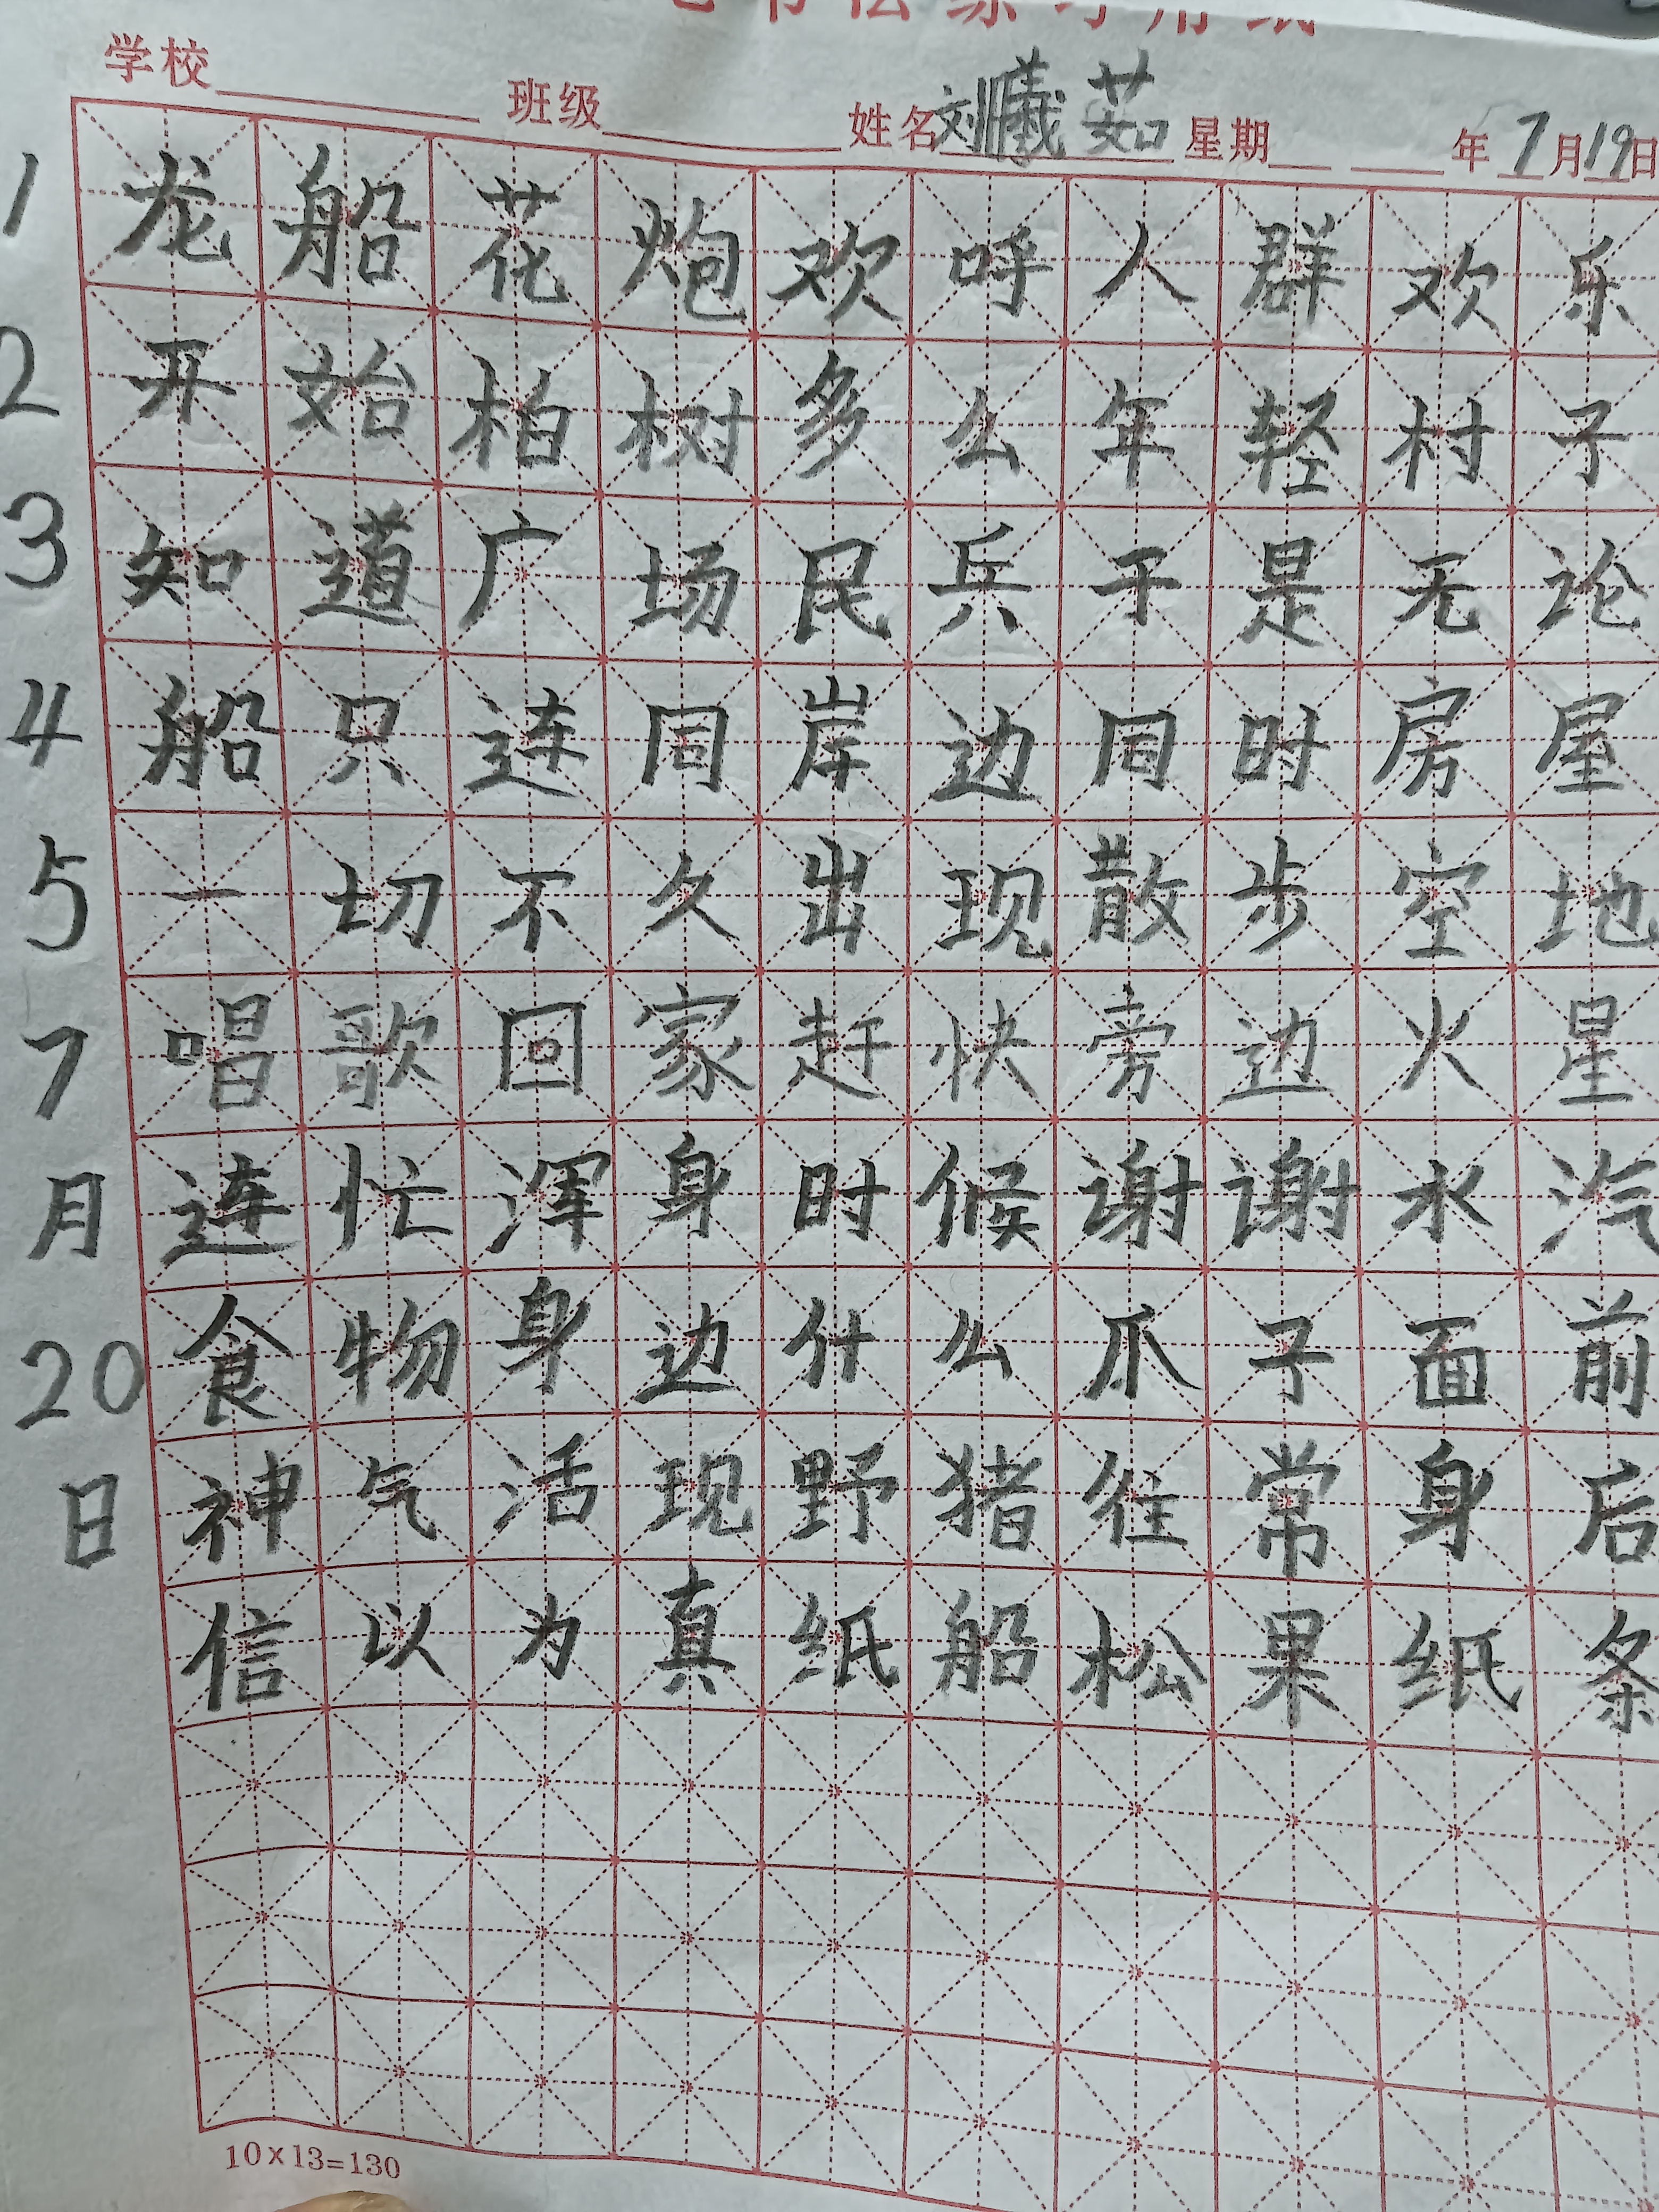 学校 班级 姓名 刘曦茹 星期 年 7月19日
1 龙船花炮欢呼人群欢乐
2 开始柏树多么年轻村子
3 知道广场民兵于是无论
4 船只连同岸边同时房屋
5 一切不久出现散步空地
7 唱歌回家赶快旁边火星
月 连忙浑身时候谢谢水汽
20 食物身边什么爪子面前
日 神气活现野猪往常身后
信以为真纸船松果纸条
10×13=130